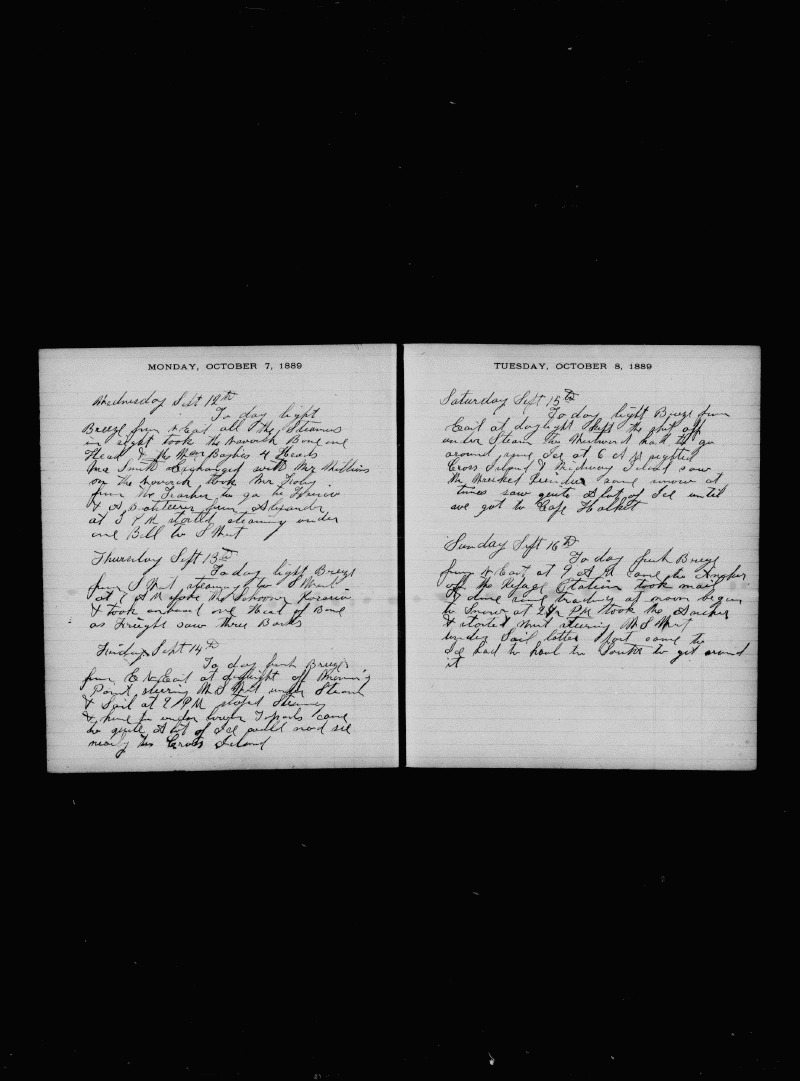 MONDAY, OCTOBER 7, 1889
Wednesday Sept 12th
To day light
Breeze from N East all the Steamers
in sight took the Navarch Bone one
Head & the Mary 4 Heads
Mr Smith Exchanged with Mr Mullins
on the Navarch took Mr
from the to go to
& A from Alexander
at 3 P M started steaming under
one Bell to S West
Thursday Sept 13th
To day light Breeze
from S West steaming to S West
at 7 A M spoke the Schooner
& took on board one Head of Bone
as Freight saw three Barks
Friday Sept 14th
To day fresh Breeze
from E N East at daylight off
Point steering W S West under Steam
& Sail at 2 P M stopt Steaming
& under lower Topsails came
to quite A lot of Ice could not see
nearly to Cross Island
TUESDAY, OCTOBER 8, 1889
Saturday Sept 15th
To day light Breeze from
East at daylight kept the ship off
under Steam the Westward had to go
around some Ice at 6 A M sighted
Cross Island & Midway Island saw
the Wrecked some snow at
times saw quite A lot of Ice until
we got to Cape Halkett
Sunday Sept 16th
To day fresh Breeze
from N East at 9 A M came to Anchor
off the Refuge Station took mail
& done some trading at noon began
to Snow at 2 P M took the Anchor
& started West steering W S West
under Sail latter part came to
Ice had to haul to South to get around
it